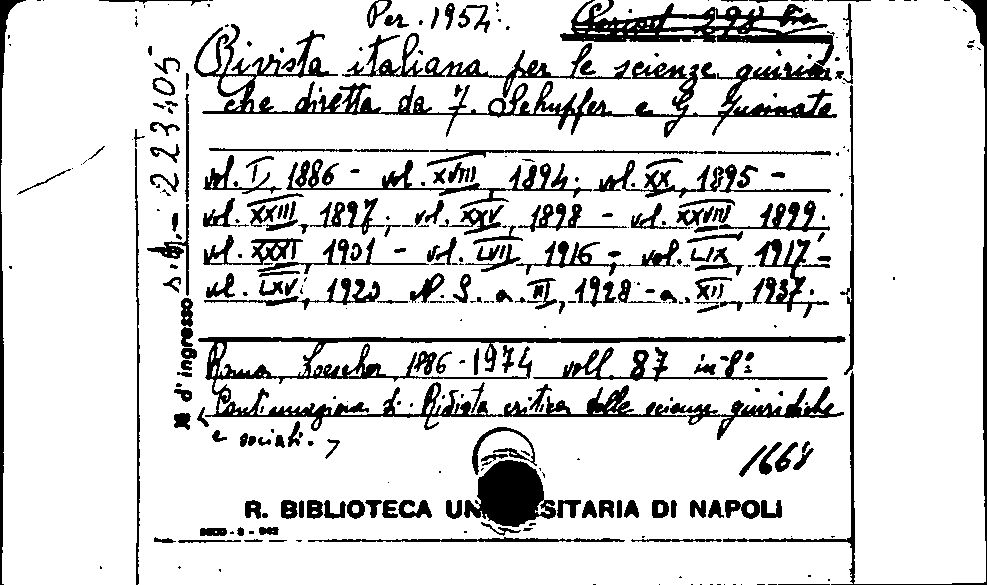 Per. 1954.
Period 298 bis
Rivista italiana per le scienze giuridi-
che diretta da F. Schupfer e G. Fusinato
vol. I, 1886 - vol. XVIII, 1894; vol. XX, 1895 -
vol. XXIII, 1897; vol. XXV, 1898 - vol. XXVIII 1899;
vol. XXXI, 1901 - vol. LVII, 1916 -; vol. LIX, 1917 -
vol. LXV, 1920 N. S. a. III, 1928 - a. XII, 1937;
Roma, Loescher, 1886 - 1974 voll. 87 in-8º
< Continuazione di: Rivista critica delle scienze giuridiche
e sociali. >
1668
N d'ingresso 223405
R. BIBLIOTECA UNIVERSITARIA DI NAPOLI